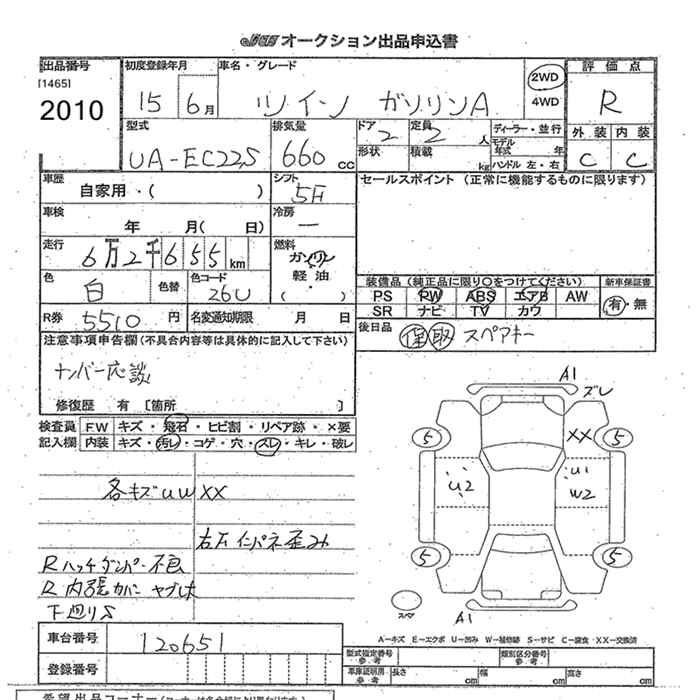 JBAオークション出品申込書
出品番号 初度登録年月 車名・グレード 評価点
[1465]
2010 15 6月 ツイン ガソリンA 2WD 4WD R
外装 内装
C C
型式 排気量 ドア 定員 ディーラー・並行
UA-EC22S 660cc 2 2人 モデル年式 年
形状 積載 kg ハンドル 左・右
車歴 シフト セールスポイント (正常に機能するものに限ります)
自家用・( ) 5F
車検 冷房
年 月( 日) —
走行 燃料
6万2千655km ガソリン
軽油
( ・ )
色 色替 色コード
白 26U
装備品 (純正品に限り○をつけてください) 新車保証書
PS PW ABS エアB AW 有・無
SR ナビ TV カワ
R券 5510円 名変通知期限 月 日
後日品 保 取 スペアキー
注意事項申告欄(不具合内容等は具体的に記入して下さい)
ナンバー応談
修復歴 有 [箇所 ]
検査員 FW キズ・飛石・ヒビ割・リペア跡・×要
記入欄 内装 キズ・汚レ・コゲ・穴・スレ・キレ・破レ
各キズUWXX
右下インパネ歪み
Rハッチダンパー不良
R内張カバー ヤブレ
下廻りS
A1 ズレ
5 XX 5
U2 U1
W2
5 5
スペア A1
A-キズ E-エクボ U-凹み W-補修跡 S-サビ C-腐食 XX-交換済
車台番号 120651
登録番号
型式指定番号 参考 類別区分番号 参考
車庫証明用 参考 長さ cm 幅 cm 高さ cm
希望出品コーナー